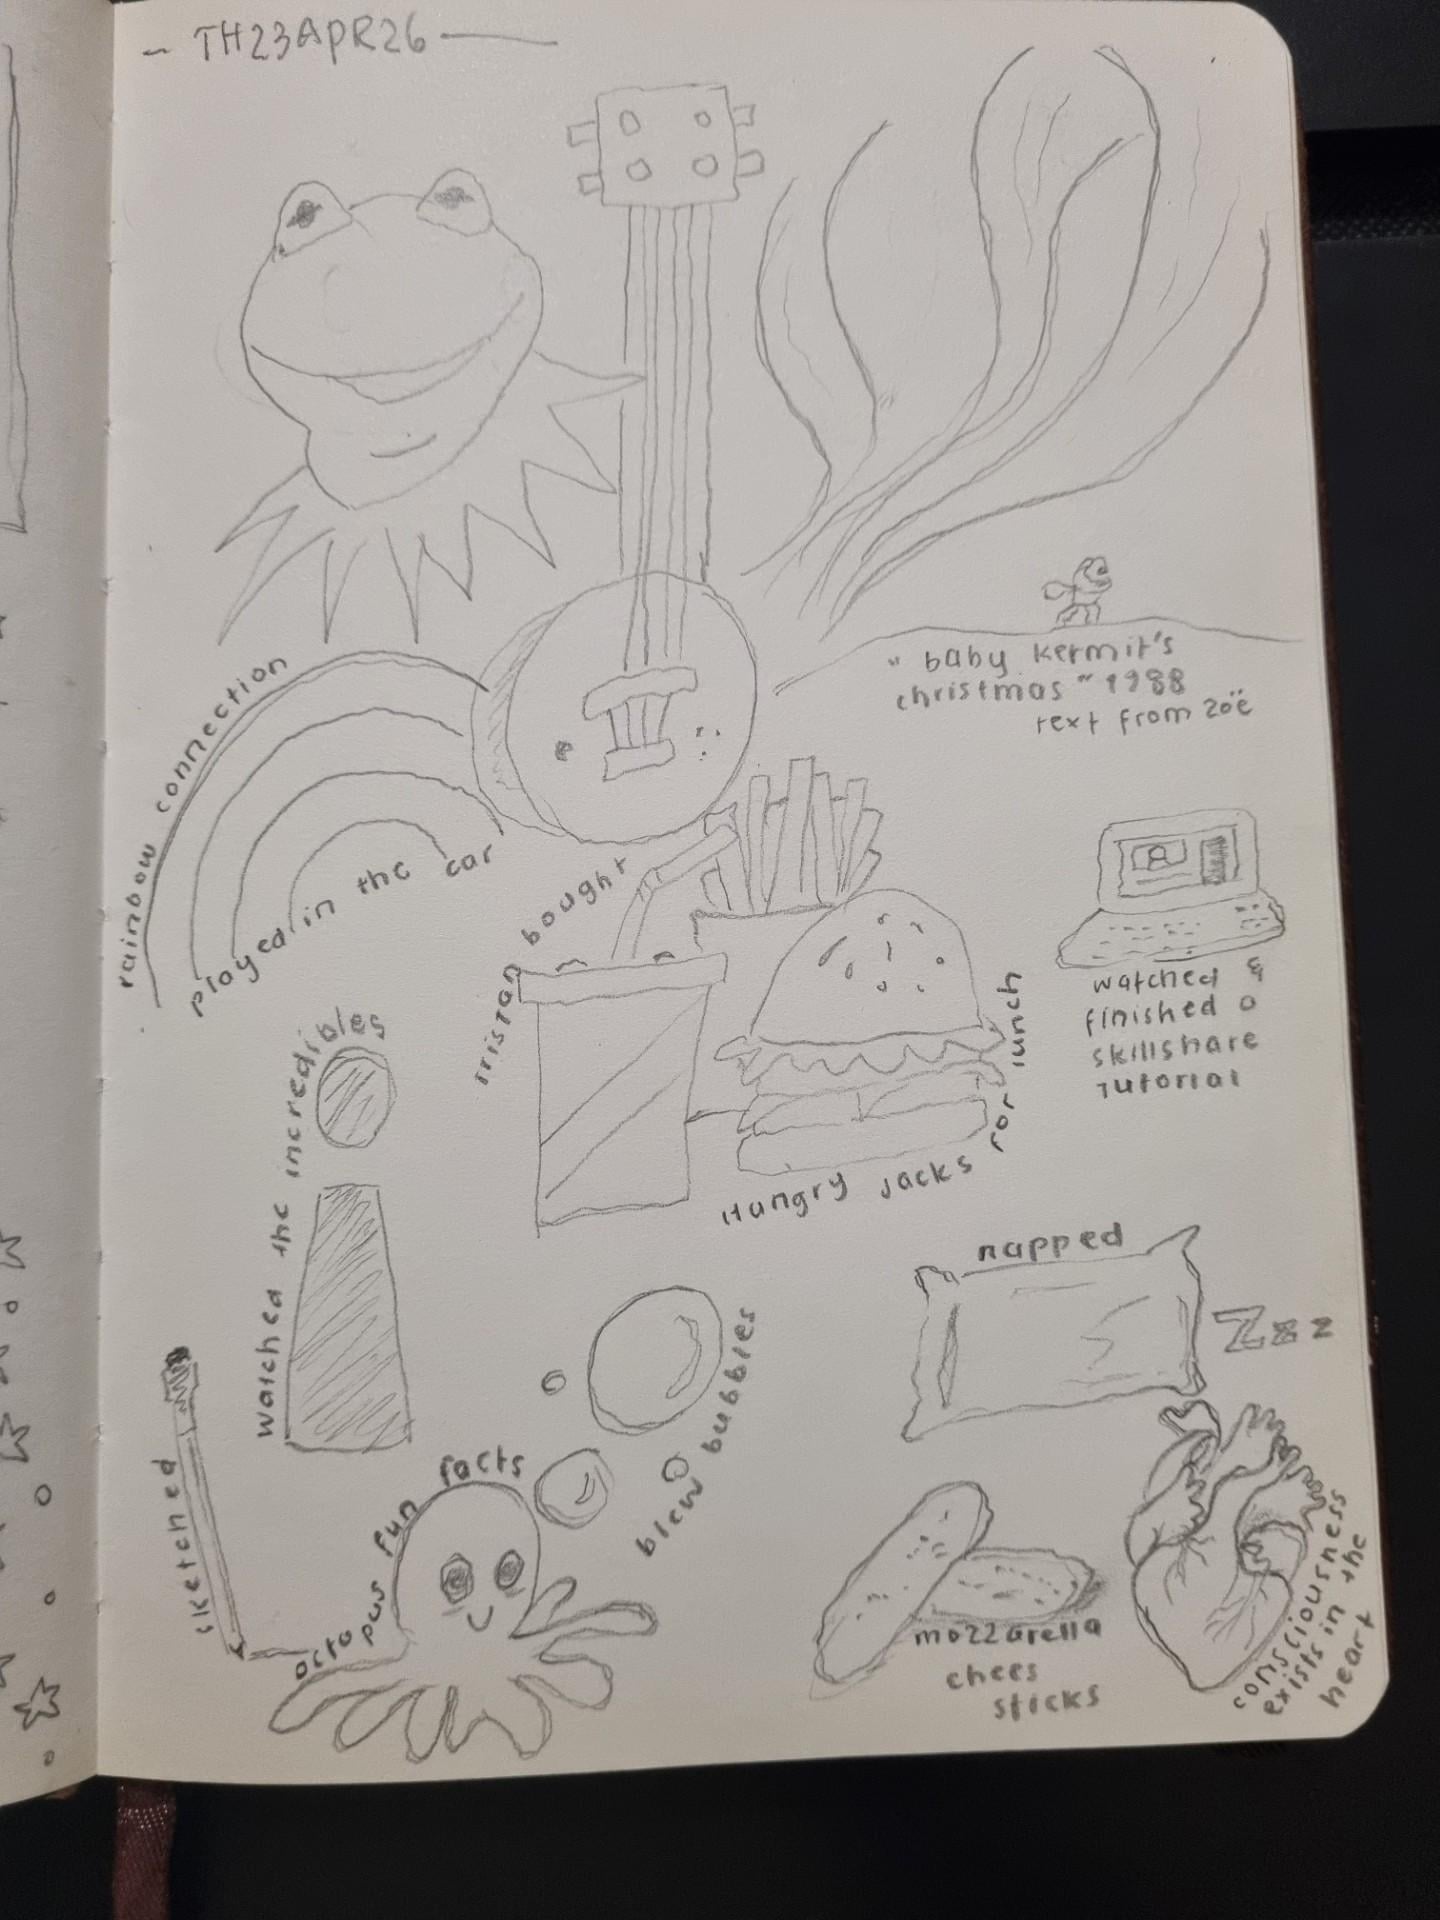 - TH23APR26 -
rainbow connection
played in the car
"baby kermit's
christmas" 1988
text from zoë
tristan bought
Hungry Jacks for lunch
watched &
finished a
skillshare
tutorial
watched the incredibles
napped
Zzz
blew bubbles
sketched
octopus fun facts
mozzarella
chees
sticks
consciousness
exists in the
heart